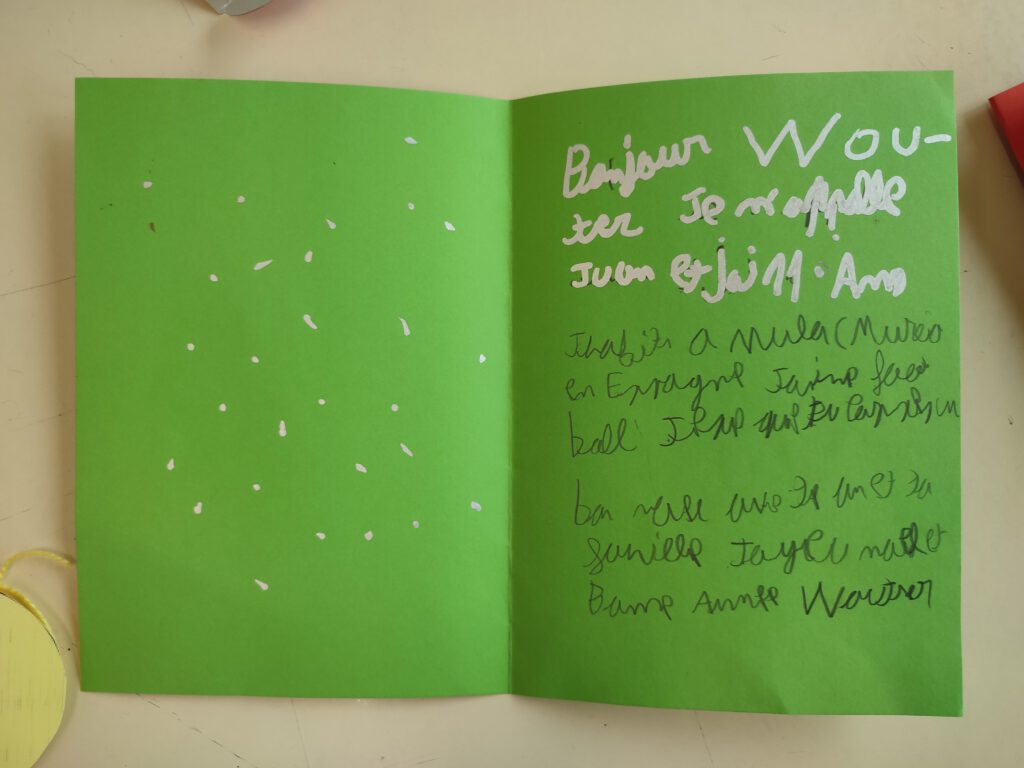 Bonjour Wou-
ter Je m'appelle
Juan et j'ai 11 Ans
J'habite a Mula (Murcia
en Espagne J'aime foot
ball que tu
bon et ta
famille Joyeu noel et
Bonne Année Wouter